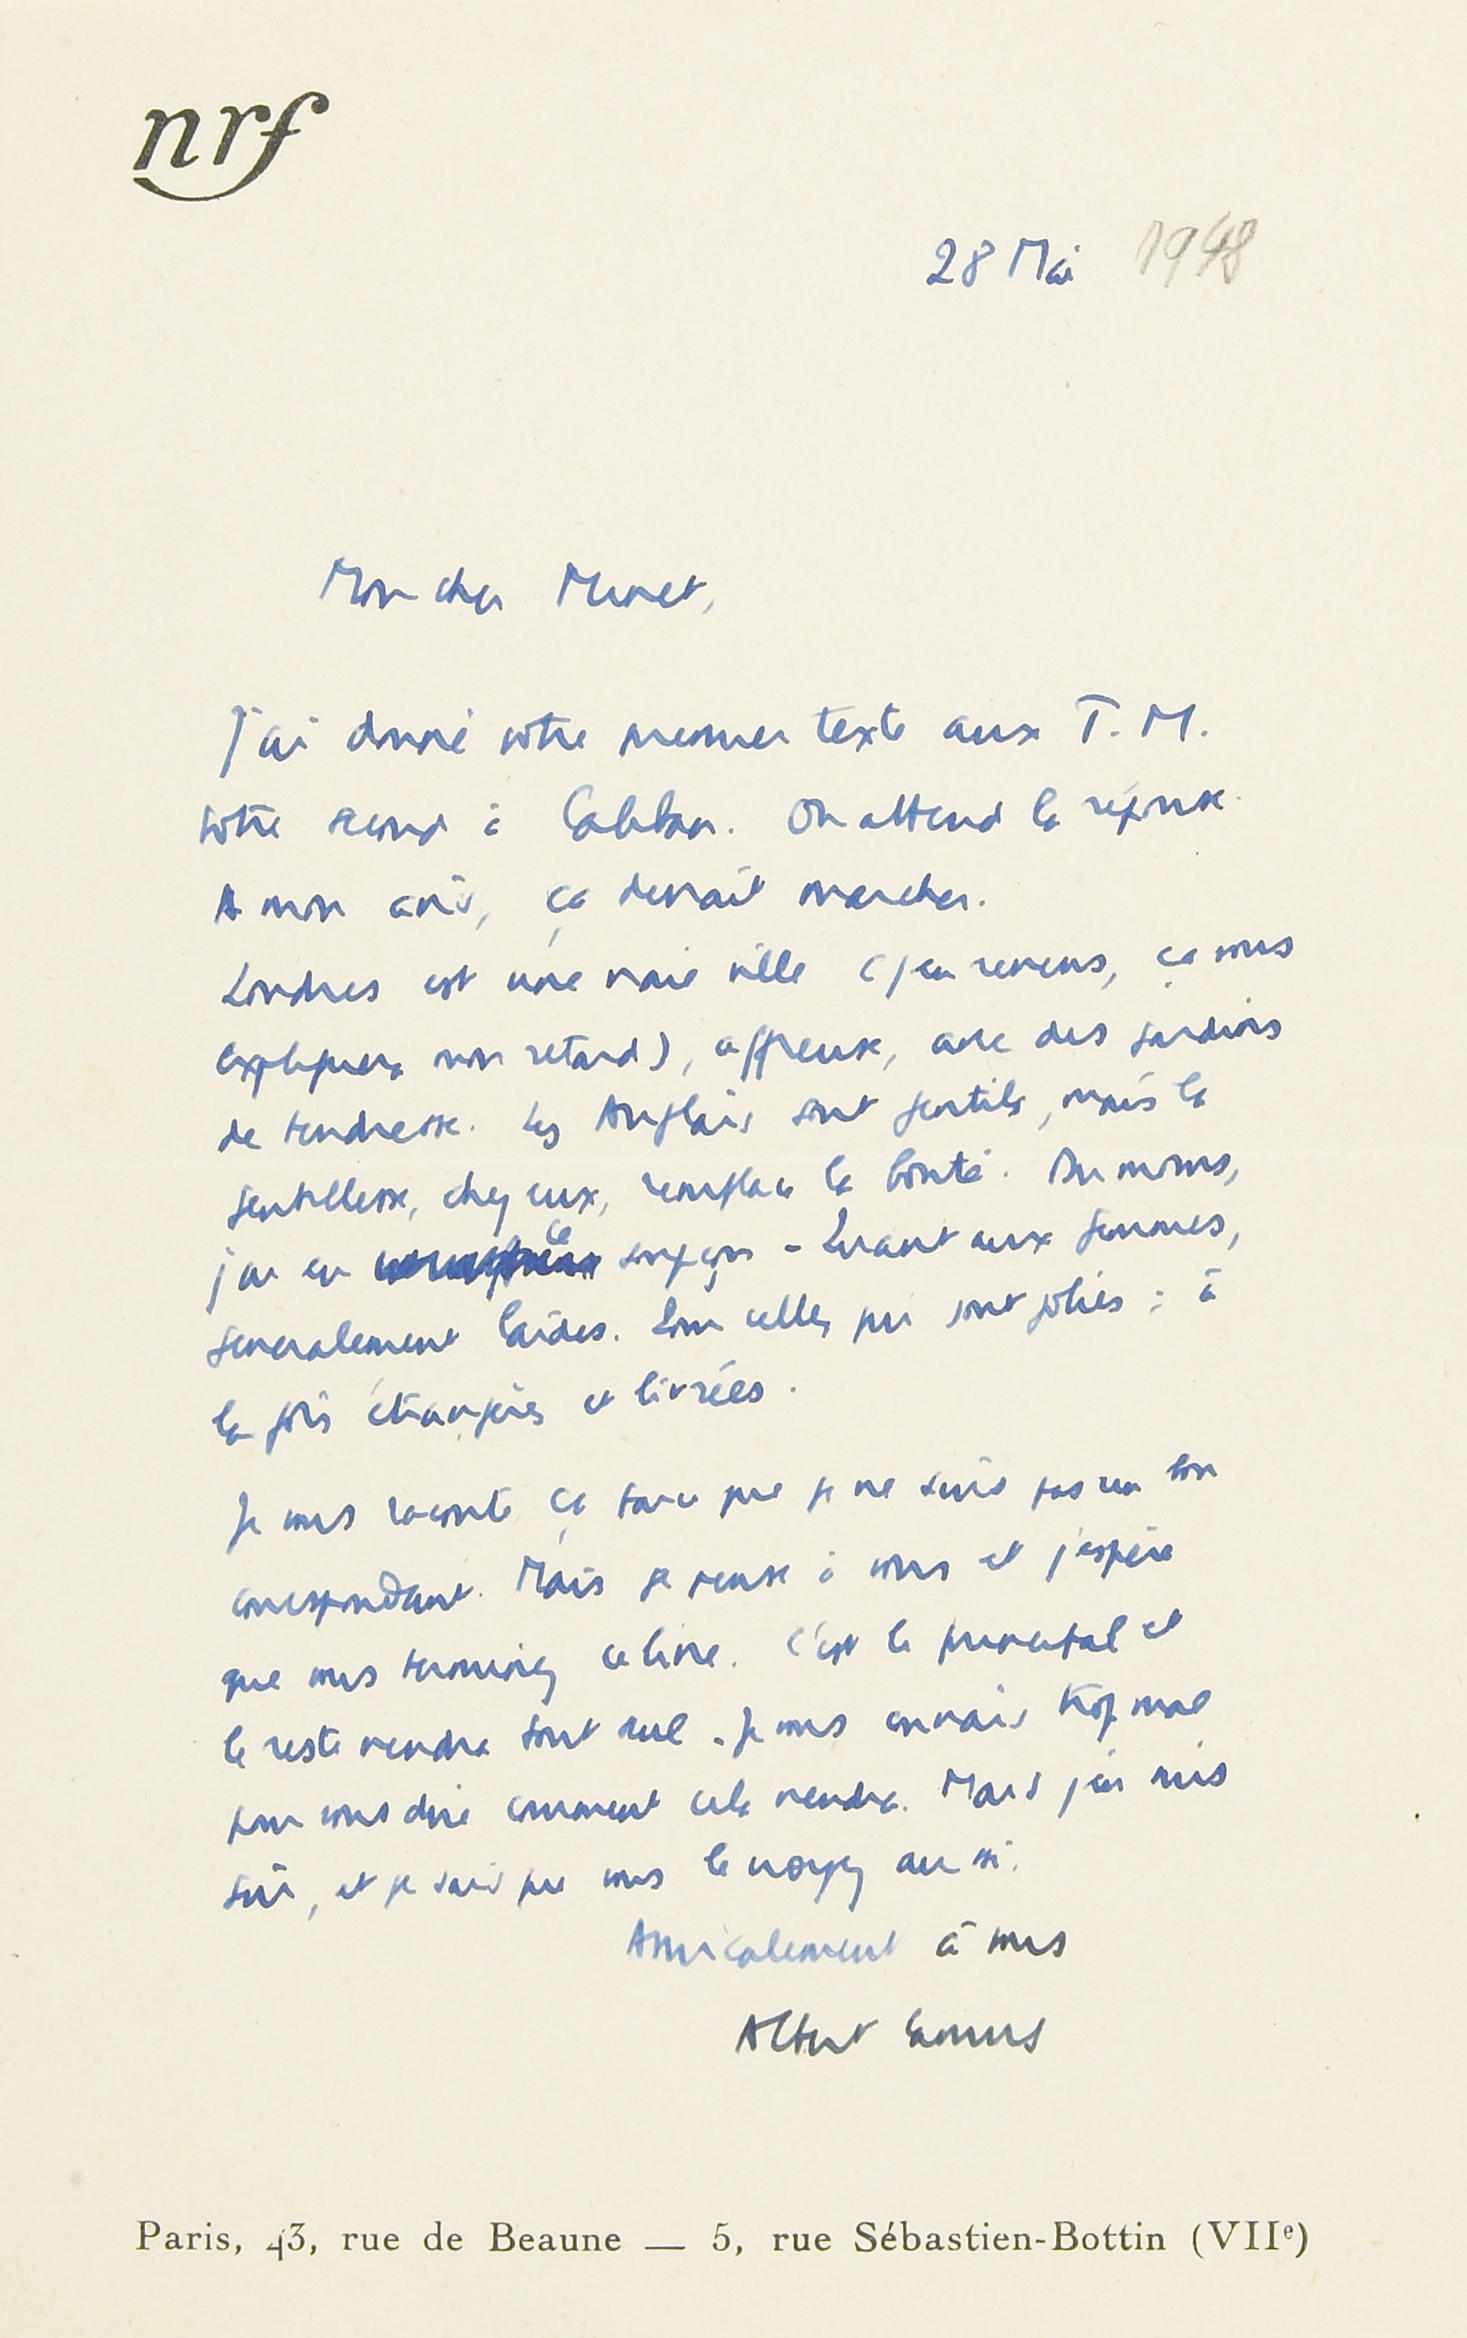 nrf
28 Mai 1948
Mon cher Minet,
J'ai donné votre premier texte aux T. M.
votre second à Caliban. On attend la réponse.
A mon avis, ça devrait marcher.
Londres est une vraie ville (j'en reviens, ça vous
expliquera mon retard), affreuse, avec des jardins
de tendresse. Les Anglais sont gentils, mais la
gentillesse, chez eux, remplace la bonté. Du moins,
j'en ai ce soupçon - Quant aux femmes,
généralement laides. Sauf celles qui sont jolies : à
la fois étrangères et livrées.
Je vous raconte ça parce que je ne suis pas un bon
correspondant. Mais je pense à vous et j'espère
que vous terminez ce livre. C'est le principal et
le reste viendra tout seul. Je vous connais trop mal
pour vous dire comment cela viendra. Mais j'en suis
sûr, et je sais que vous le croyez aussi.
Amicalement à vous
Albert Camus
Paris, 43, rue de Beaune — 5, rue Sébastien-Bottin (VIIe)